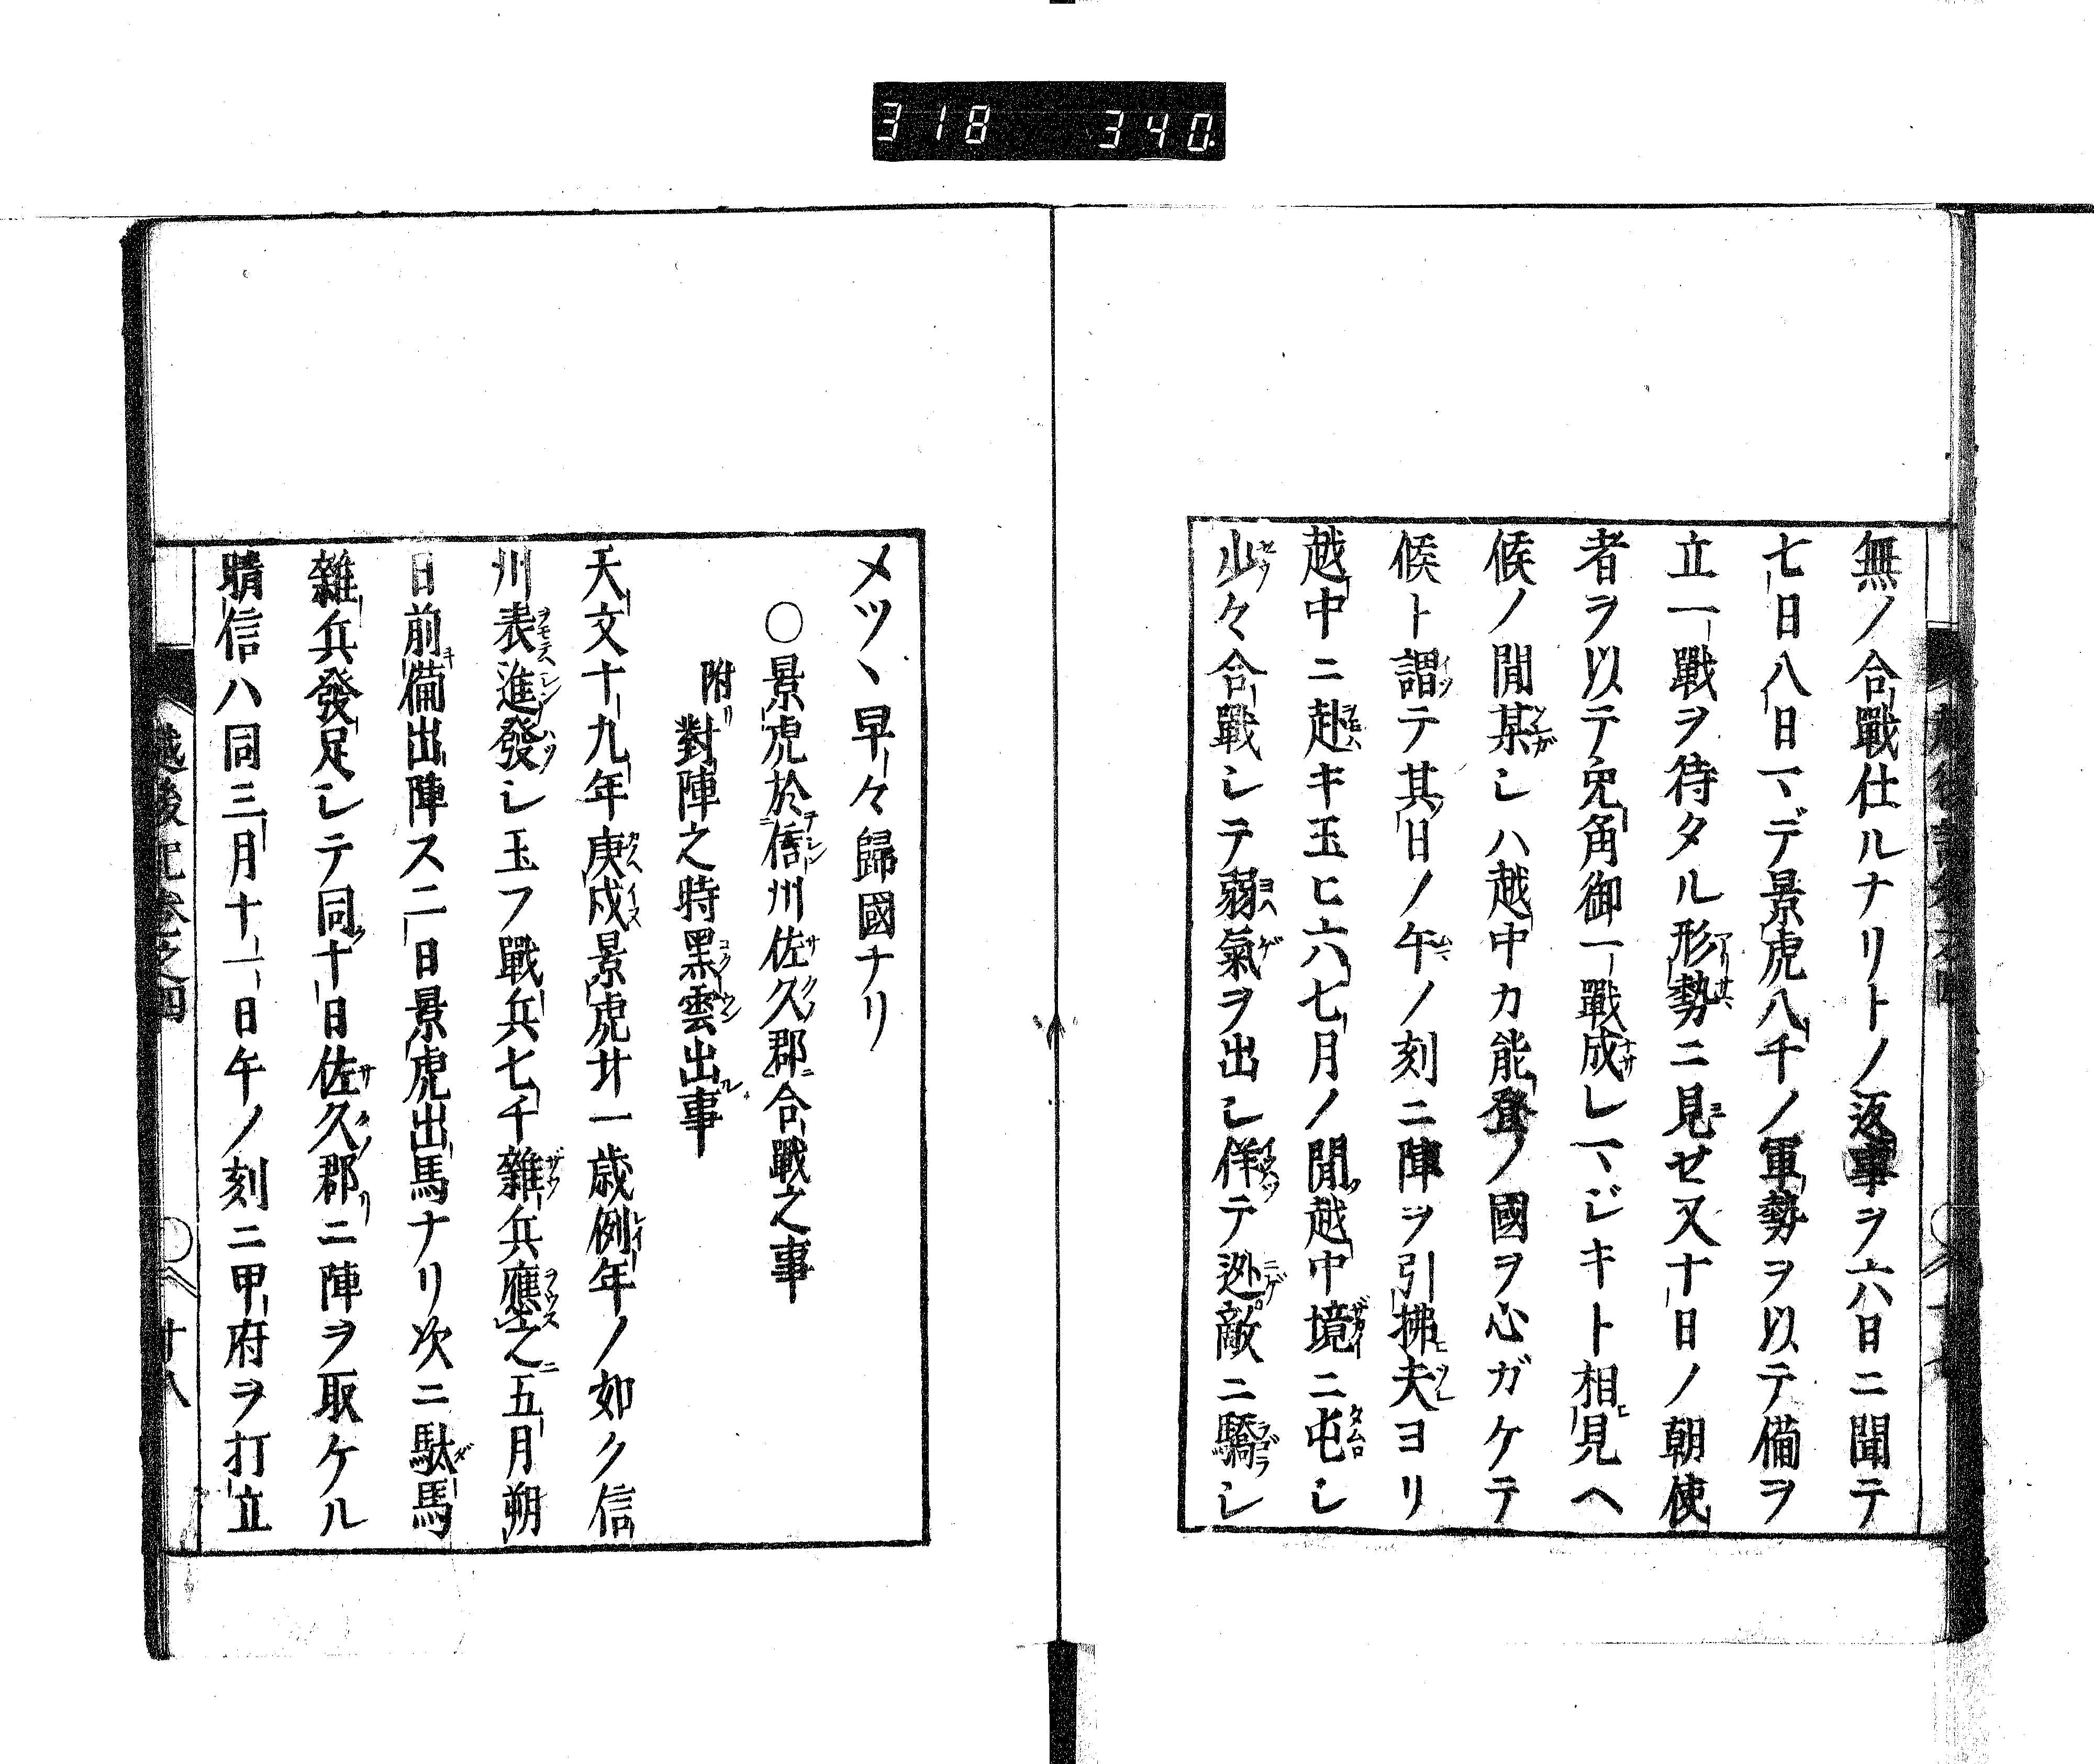 318 340
無ノ合戰仕ルナリトノ返事ヲ六日ニ聞テ
七日八日マデ景虎八千ノ軍勢ヲ以テ備ヲ
立一戰ヲ待タル形勢ニ見せ又十日ノ朝使
者ヲ以テ兎角御一戰成レマジキト相見ヘ
候ノ間某シハ越中カ能登ノ國ヲ心ガケテ
候ト謂テ其日ノ午ノ刻ニ陣ヲ引拂夫ヨリ
越中ニ赴キ玉ヒ六七月ノ間越中境ニ屯シ
少々合戰シテ弱氣ヲ出シ佯テ迯敵ニ驕ラシ
メツヽ早々歸國ナリ
○景虎於信州佐久郡合戰之事
附リ對陣之時黑雲出事
天文十九年庚戌景虎廿一歳例年ノ如ク信
州表進發シ玉フ戰兵七千雜兵應之五月朔
日前備出陣ス二日景虎出馬ナリ次ニ駄馬
雜兵發足シテ同十日佐久郡ニ陣ヲ取ケル
晴信ハ同三月十一日午ノ刻ニ甲府ヲ打立
越後記卷之四
廿八